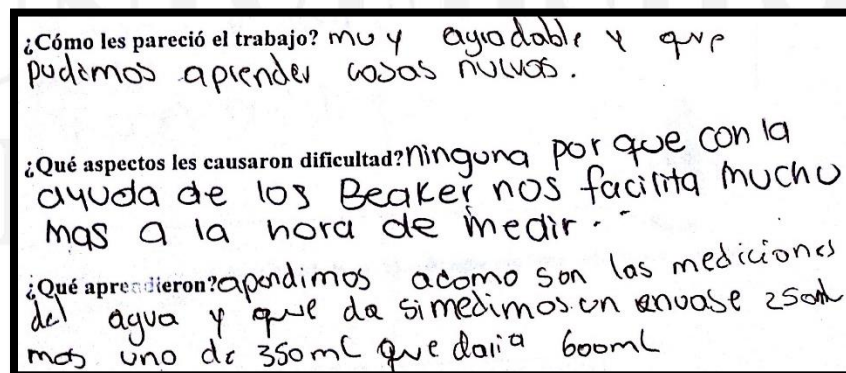 ¿Cómo les pareció el trabajo? muy agradable y que
pudimos aprender cosas nuevas.
¿Qué aspectos les causaron dificultad? ninguna por que con la
ayuda de los Beaker nos facilita mucho
mas a la hora de medir.
¿Qué aprendieron? apendimos acomo son las mediciones
del agua y que da si medimos un envase 250ml
mas uno de 350ml que daria 600ml